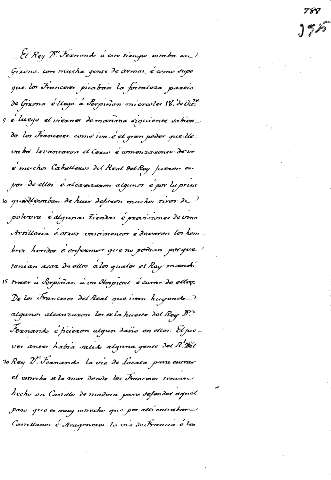 788
395
El Rey Dn. Fernando á este tiempo estaba en
Girona con mucha gente de armas, é como supo
que los Franceses picaban la fortaleza, partió
de Girona é llegó á Perpiñan miercoles 18. de Octe.
5 é luego el viernes de mañana siguiente sabien-
do los Franceses como iva, é el gran poder que lle-
vaba levantaron el Cerco é comenzaronse de ir
é muchos Caballeros del Real del Rey fueron em-
pos de ellos é alcanzaron algunos é por la priesa
10 que llevaban de huir dejaron muchos tiros de
polvora é algunas tiendas é provisiones de una
Artilleria é otros mantenimientos é dejaron los hom-
bres heridos é enfermos que no podian porque
tenian asaz de ellos á los quales el Rey mandó
15 traer á Perpiñan á un Hospital é curar de ellos.
De los Franceses del Real que ivan huyendo
algunos alcanzaron los de la hueste del Rey Dn.
Fernando é ficieron algun daño en ellos. El jue-
ves antes habia salido alguna gente del Rl. del
20 Rey Dn. Fernando la via de Locata para correr
el campo á la mar donde los Franceses tenian
hecho un Castillo de madera para defender aquel
paso que es muy estrecho que por alli entraban
Castellanos é Aragoneses la via de Francia é los